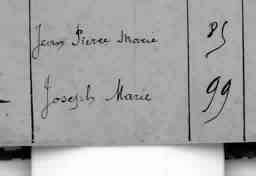 Jean Pierre Marie 85
Joseph Marie 99